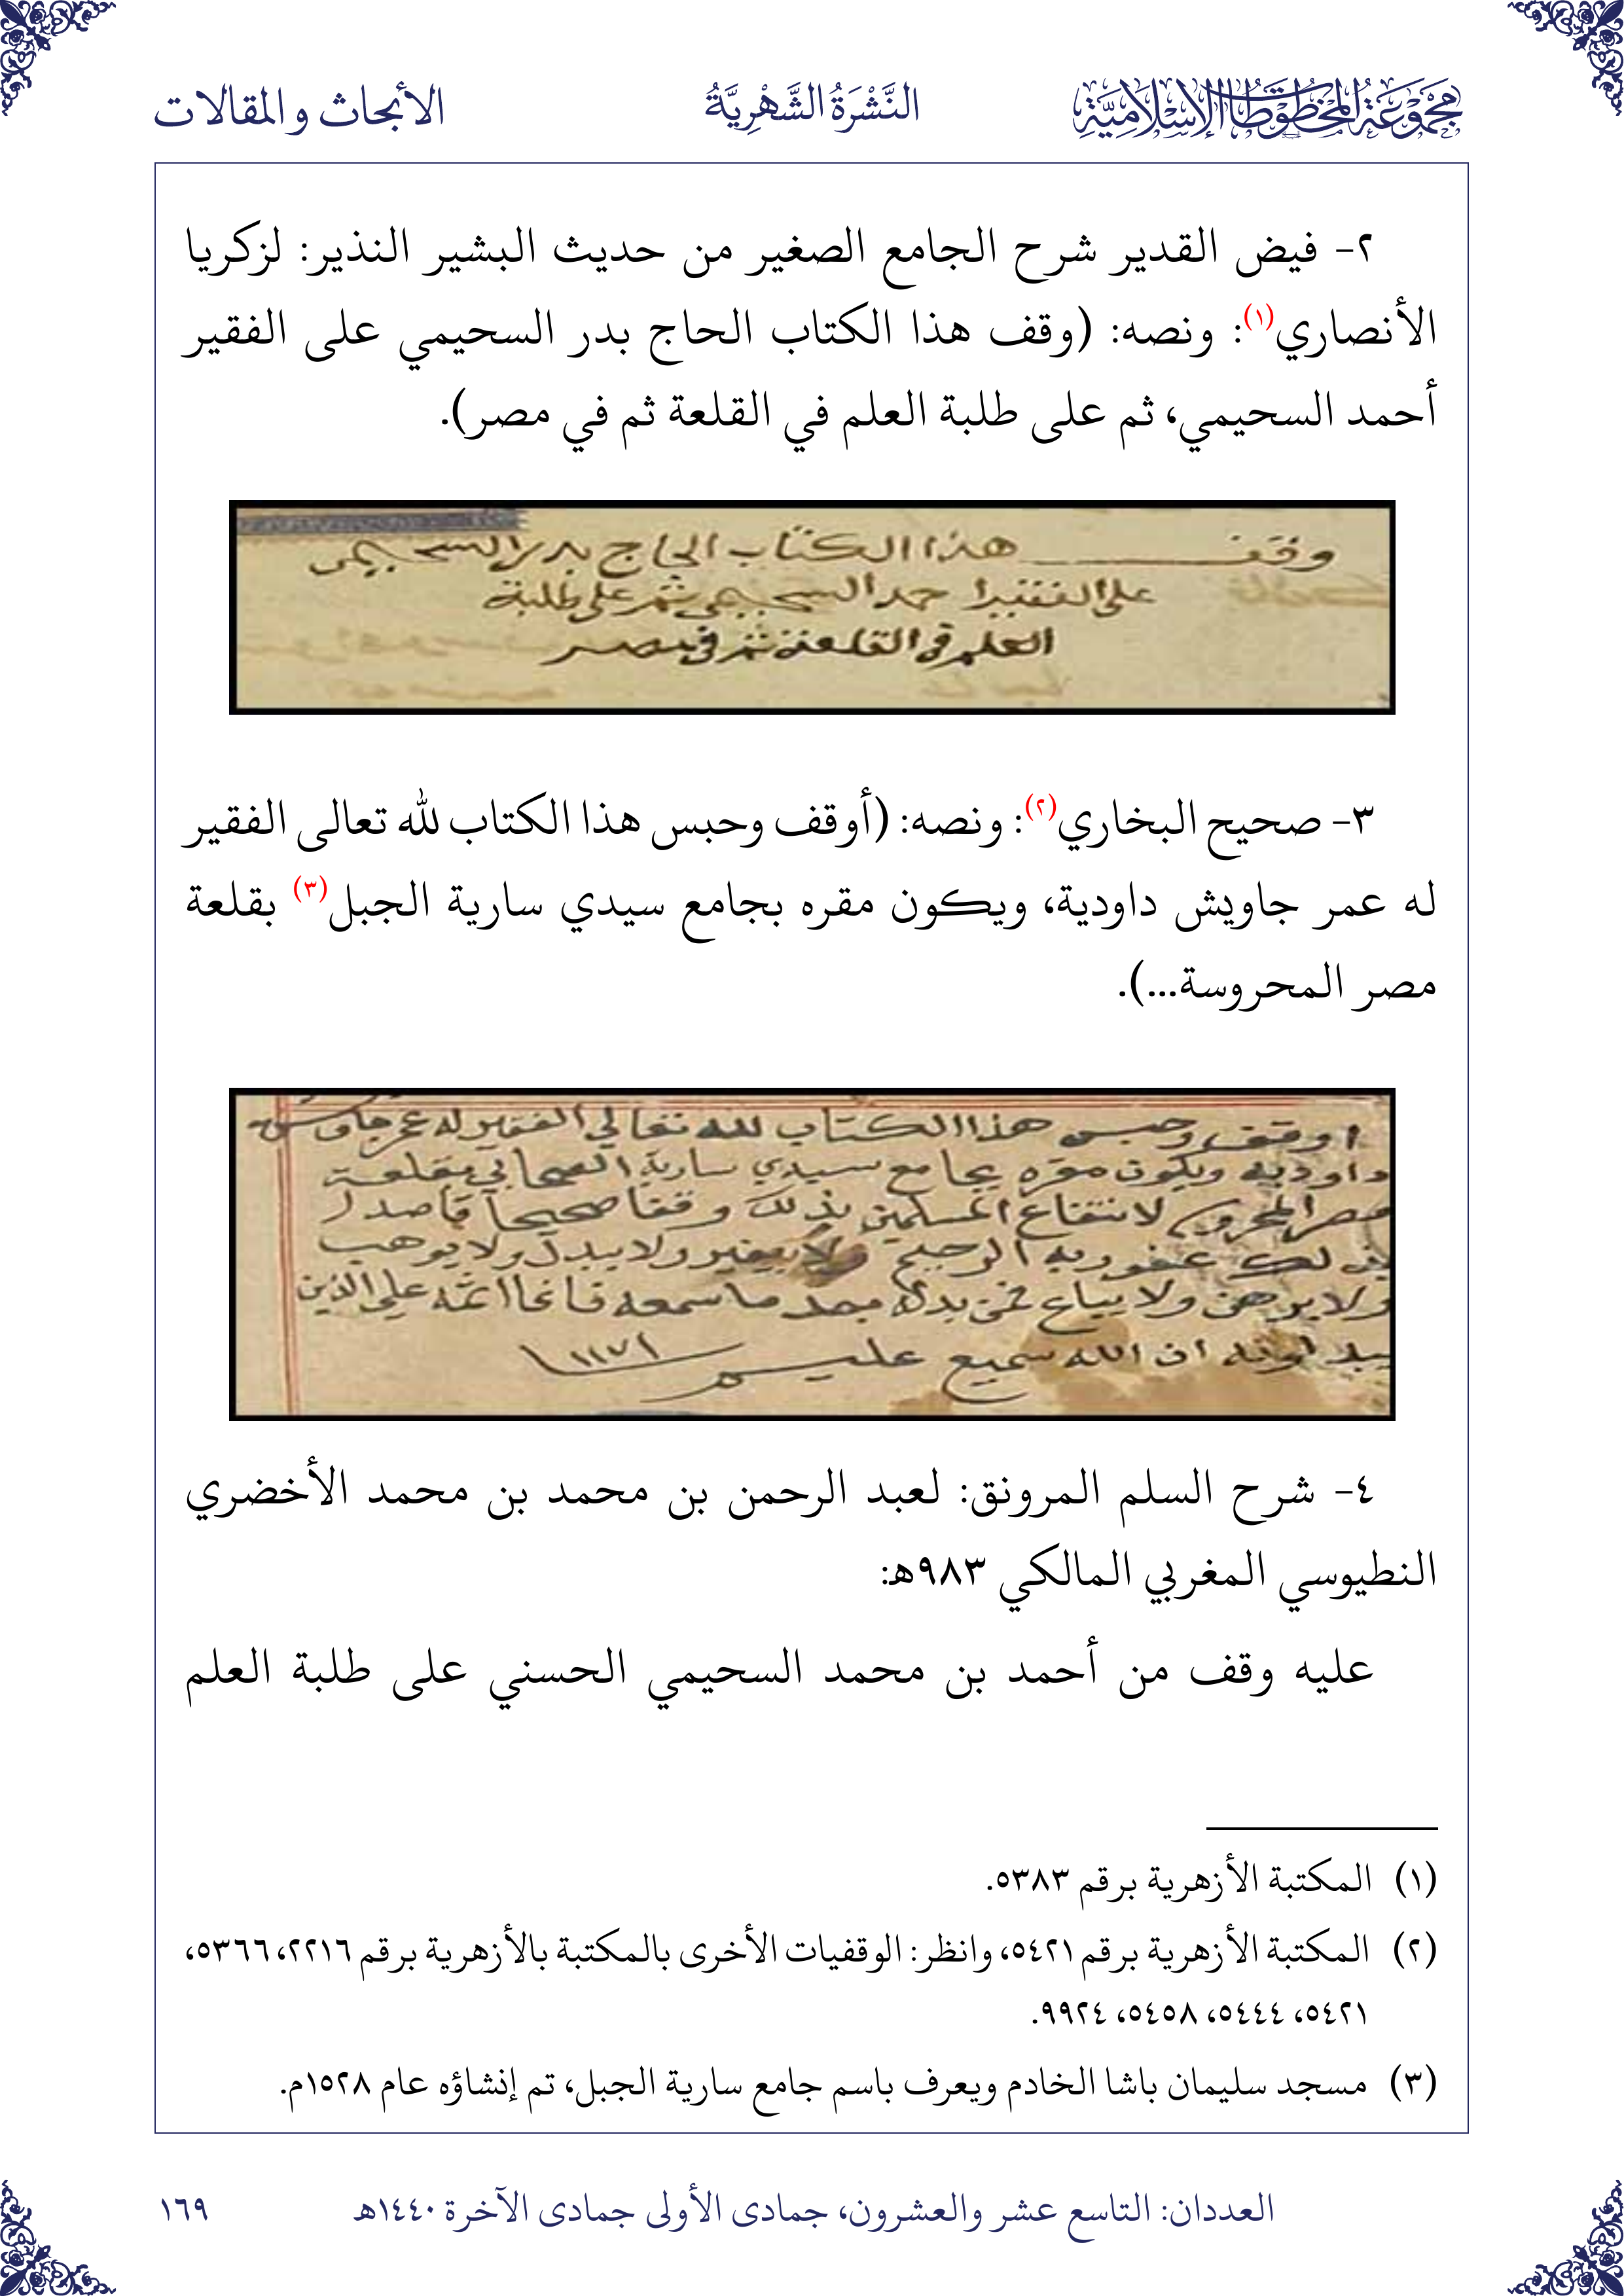 مجموعة المخطوطات الإسلامية
النَّشْرَةُ الشَّهْرِيَّةُ
الأبحاث والمقالات
٢- فيض القدير شرح الجامع الصغير من حديث البشير النذير: لزكريا
الأنصاري(١): ونصه: (وقف هذا الكتاب الحاج بدر السحيمي على الفقير
أحمد السحيمي، ثم على طلبة العلم في القلعة ثم في مصر).
وقف هذا الكتاب الحاج بدر السحيمي
على الفقير احمد السحيمي ثم على طلبة
العلم في القلعة ثم في مصر
٣- صحيح البخاري(٢): ونصه: (أوقف وحبس هذا الكتاب لله تعالى الفقير
له عمر جاويش داودية، ويكون مقره بجامع سيدي سارية الجبل(٣) بقلعة
مصر المحروسة...).
اوقف وحبس هذا الكتاب لله تعالي الفقير له عمر جاويش
داوديه ويكون مقره بجامع سيدي سارية الصحابي بقلعة
مصر المحروسه لانتفاع المسلمين بذلك وقفا صحيحا قاصدا
بذلك عفو ربه الرحيم ولا يغير ولا يبدل ولا يوهب
ولا يرهن ولا يباع فمن بدله بعد ما سمعه فانما اثمه علي الذين
يبدلونه ان الله سميع عليم ١١٧١
٤- شرح السلم المرونق: لعبد الرحمن بن محمد بن محمد الأخضري
النطيوسي المغربي المالكي ٩٨٣هـ:
عليه وقف من أحمد بن محمد السحيمي الحسني على طلبة العلم
(١) المكتبة الأزهرية برقم ٥٣٨٣.
(٢) المكتبة الأزهرية برقم ٥٤٢١، وانظر: الوقفيات الأخرى بالمكتبة بالأزهرية برقم ٢٢١٦، ٥٣٦٦،
٥٤٢١، ٥٤٤٤، ٥٤٥٨، ٩٩٢٤.
(٣) مسجد سليمان باشا الخادم ويعرف باسم جامع سارية الجبل، تم إنشاؤه عام ١٥٢٨م.
العددان: التاسع عشر والعشرون، جمادى الأولى جمادى الآخرة ١٤٤٠هـ
١٦٩